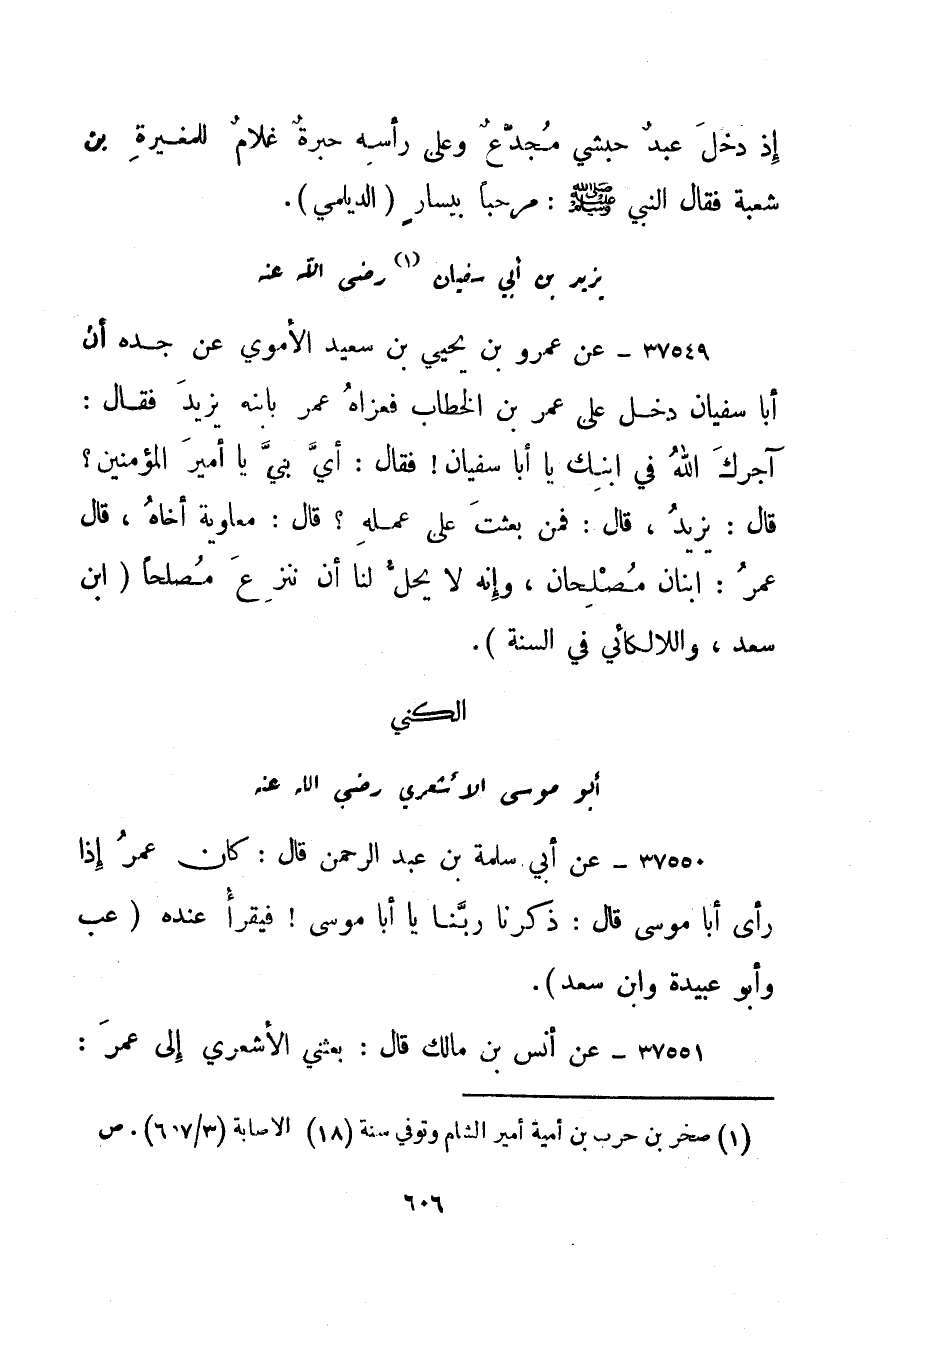 إذ دخلَ عبدٌ حبشي مُجدَّعٌ وعلى رأسه حبرةٌ غلامٌ للمغيرةِ بن
شعبة فقال النبي ﷺ : مرحباً بيسارٍ ( الديلمي ) .
يزيد بن أبي سفيان (١) رضى الله عنه
٣٧٥٤٩ ـ عن عمرو بن يحيي بن سعيد الأموي عن جده أن
أبا سفيان دخل على عمر بن الخطاب فعزاهُ عمر بابنه يزيدَ فقال :
آجركَ اللهُ في ابنِك يا أبا سفيان ! فقال : أيَّ بنيَّ يا أميرَ المؤمنين ؟
قال : يزيدُ ، قال : فمن بعثتَ على عملهِ ؟ قال : معاوية أخاهُ ، قال
عمرُ : ابنان مُصْلِحان ، وإنه لا يحلُّ لنا أن ننزِعَ مُصلحاً ( ابن
سعد ، واللالكائي في السنة ) .
الكني
أبو موسى الأشعري رضي الله عنه
٣٧٥٥٠ ـ عن أبي سلمة بن عبد الرحمن قال : كان عمرُ إذا
رأى أبا موسى قال : ذكرنا ربَّنا يا أبا موسى ! فيقرأُ عنده ( عب
وأبو عبيدة وابن سعد ) .
٣٧٥٥١ ـ عن أنس بن مالك قال : بعثني الأشعري إلى عمرَ :
(١) صخر بن حرب بن أمية أمير الشام وتوفي سنة (١٨) الاصابة (٦٠٧/٣) . ص
٦٠٦